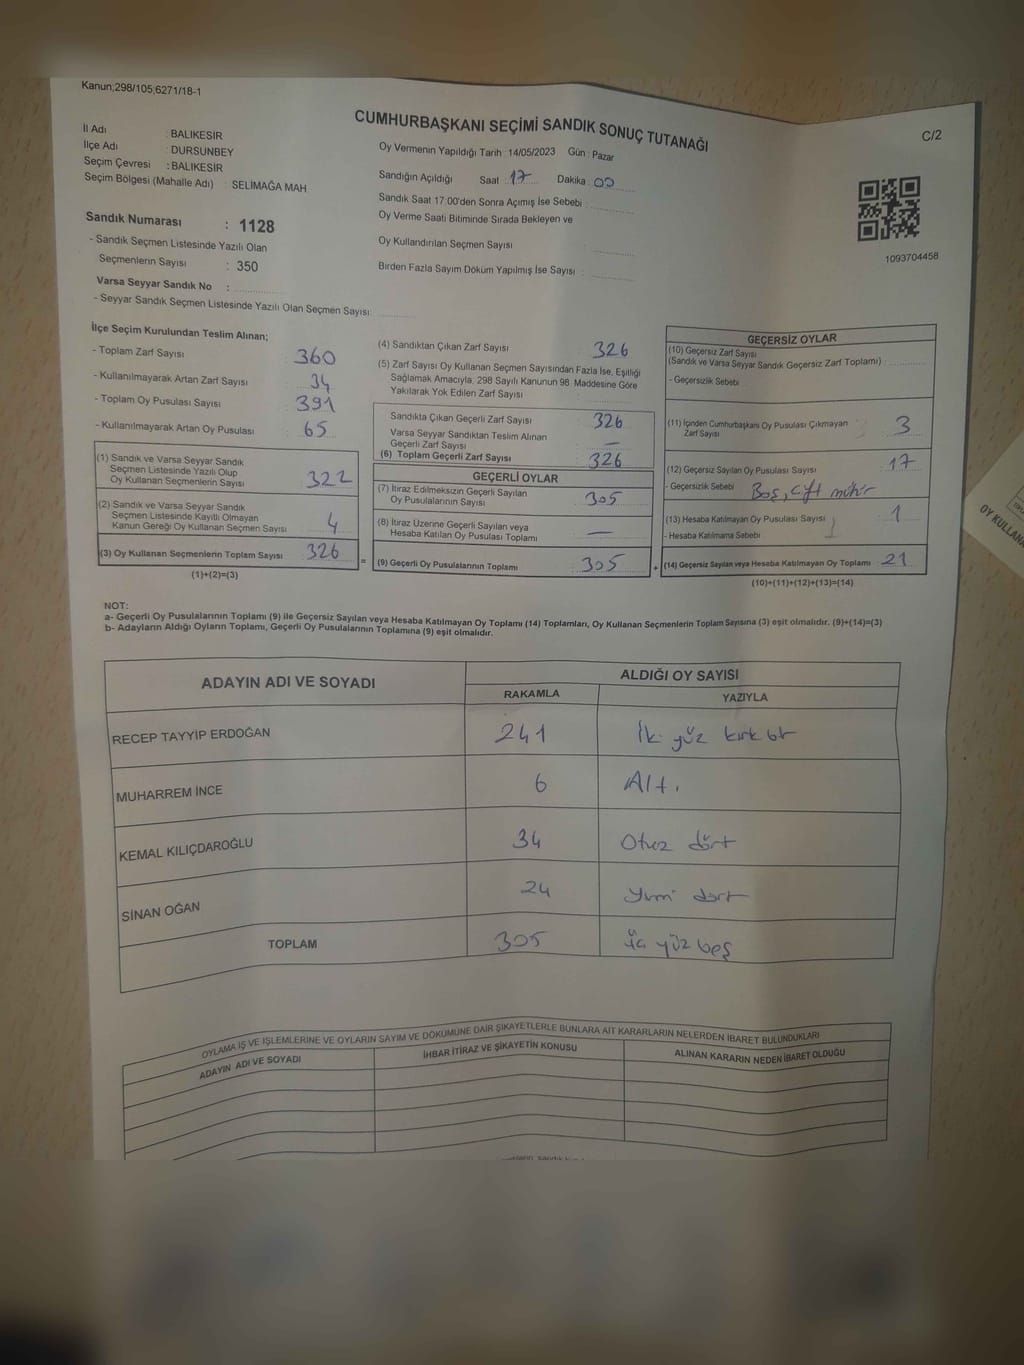 Kanun;298/105;6271/18-1
CUMHURBAŞKANI SEÇİMİ SANDIK SONUÇ TUTANAĞI
C/2
İl Adı : BALIKESİR
İlçe Adı : DURSUNBEY
Seçim Çevresi : BALIKESİR
Seçim Bölgesi (Mahalle Adı) : SELİMAĞA MAH.
Sandık Numarası : 1128
- Sandık Seçmen Listesinde Yazılı Olan
Seçmenlerin Sayısı : 350
Varsa Seyyar Sandık No :
- Seyyar Sandık Seçmen Listesinde Yazılı Olan Seçmen Sayısı:
Oy Vermenin Yapıldığı Tarih : 14/05/2023 Gün : Pazar
Sandığın Açıldığı Saat : 17 Dakika : 00
Sandık Saat 17:00'den Sonra Açımış İse Sebebi :
Oy Verme Saati Bitiminde Sırada Bekleyen ve
Oy Kullandırılan Seçmen Sayısı :
Birden Fazla Sayım Döküm Yapılmış İse Sayısı :
1093704458
İlçe Seçim Kurulundan Teslim Alınan;
- Toplam Zarf Sayısı : 360
- Kullanılmayarak Artan Zarf Sayısı : 34
- Toplam Oy Pusulası Sayısı : 391
- Kullanılmayarak Artan Oy Pusulası : 65
(1) Sandık ve Varsa Seyyar Sandık
Seçmen Listesinde Yazılı Olup
Oy Kullanan Seçmenlerin Sayısı : 322
(2) Sandık ve Varsa Seyyar Sandık
Seçmen Listesinde Kayıtlı Olmayan
Kanun Gereği Oy Kullanan Seçmen Sayısı : 4
(3) Oy Kullanan Seçmenlerin Toplam Sayısı : 326
(1)+(2)=(3)
(4) Sandıktan Çıkan Zarf Sayısı : 326
(5) Zarf Sayısı Oy Kullanan Seçmen Sayısından Fazla İse, Eşitliği
Sağlamak Amacıyla, 298 Sayılı Kanunun 98. Maddesine Göre
Yakılarak Yok Edilen Zarf Sayısı :
Sandıkta Çıkan Geçerli Zarf Sayısı : 326
Varsa Seyyar Sandıktan Teslim Alınan
Geçerli Zarf Sayısı : —
(6) Toplam Geçerli Zarf Sayısı : 326
GEÇERLİ OYLAR
(7) İtiraz Edilmeksizin Geçerli Sayılan
Oy Pusulalarının Sayısı : 305
(8) İtiraz Üzerine Geçerli Sayılan veya
Hesaba Katılan Oy Pusulası Toplamı : —
= (9) Geçerli Oy Pusulalarının Toplamı : 305 +
GEÇERSİZ OYLAR
(10) Geçersiz Zarf Sayısı
(Sandık ve Varsa Seyyar Sandık Geçersiz Zarf Toplamı) :
- Geçersizlik Sebebi
(11) İçinden Cumhurbaşkanı Oy Pusulası Çıkmayan
Zarf Sayısı : 3
(12) Geçersiz Sayılan Oy Pusulası Sayısı : 17
- Geçersizlik Sebebi Boş, çift mühür
(13) Hesaba Katılmayan Oy Pusulası Sayısı : 1
- Hesaba Katılmama Sebebi
(14) Geçersiz Sayılan veya Hesaba Katılmayan Oy Toplamı : 21
(10)+(11)+(12)+(13)=(14)
NOT:
a- Geçerli Oy Pusulalarının Toplamı (9) ile Geçersiz Sayılan veya Hesaba Katılmayan Oy Toplamı (14) Toplamları, Oy Kullanan Seçmenlerin Toplam Sayısına (3) eşit olmalıdır. (9)+(14)=(3)
b- Adayların Aldığı Oyların Toplamı, Geçerli Oy Pusulalarının Toplamına (9) eşit olmalıdır.
ADAYIN ADI VE SOYADI ALDIĞI OY SAYISI
RAKAMLA YAZIYLA
RECEP TAYYİP ERDOĞAN 241 İki yüz kırk bir
MUHARREM İNCE 6 Altı
KEMAL KILIÇDAROĞLU 34 Otuz dört
SİNAN OĞAN 24 Yirmi dört
TOPLAM 305 Üç yüz beş
OYLAMA İŞ VE İŞLEMLERİNE VE OYLARIN SAYIM VE DÖKÜMÜNE DAİR ŞİKAYETLERLE BUNLARA AİT KARARLARIN NELERDEN İBARET BULUNDUKLARI
ADAYIN ADI VE SOYADI İHBAR İTİRAZ VE ŞİKAYETİN KONUSU ALINAN KARARIN NEDEN İBARET OLDUĞU